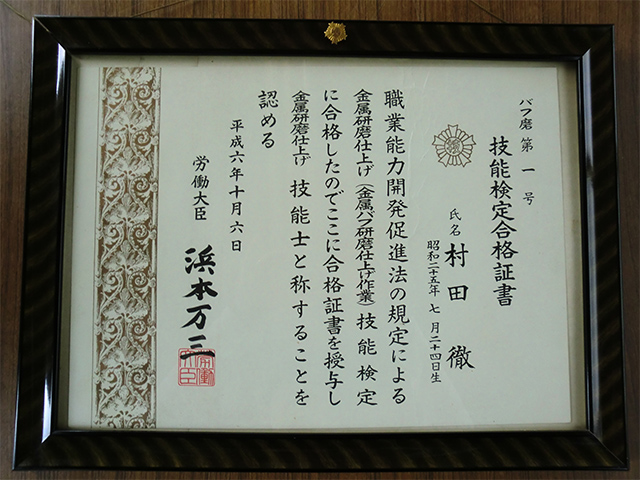 バフ磨第一号
技能検定合格証書
氏名 村田 徹
昭和二十五年七月二十四日生
職業能力開発促進法の規定による
金属研磨仕上げ(金属バフ研磨仕上げ作業)技能検定
に合格したのでここに合格証書を授与し
金属研磨仕上げ 技能士と称することを
認める
平成六年十月六日
労働大臣
浜本万三
労働大臣